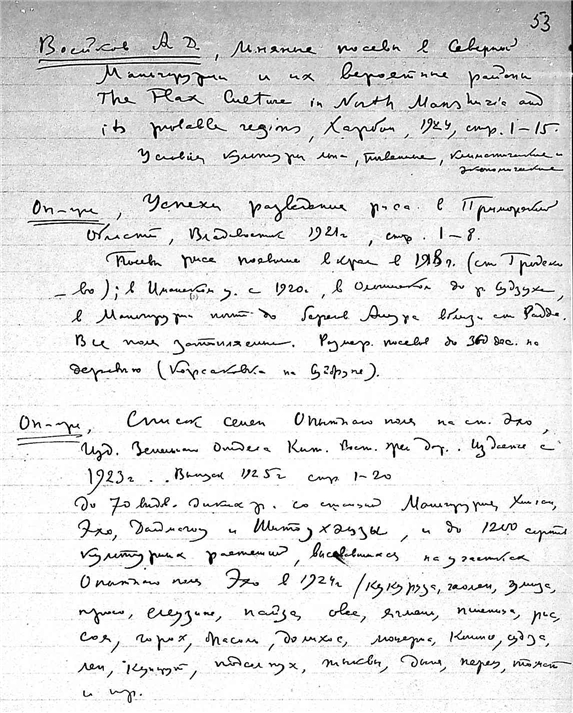 53
Воейков А Д., Льняные посевы в Северной
Манчжурии и их вероятные районы
The Flax Culture in North Manshuria and
its probable regions, Харбин, 1924, стр. 1–15.
Условия культуры льна, почвенные, климатические и
экономические
Он-же, Успехи разведения риса в Приморской
Области, Владивосток 1921г, стр. 1–8.
Посевы риса появились в крае в 1918г. (ст Гродеко
–во); в у. с 1920г., в Ольгинском до р Судзухе,
в Манчжурии почти до берегов Амура вблизи ст Радде.
Все поля затопляемые. Размер. посевов до 360 дес. на
деревню (Корсаковка на ).
Он-же, Список семян Опытного поля на ст. Эхо,
Изд. Земельного Отдела Кит. Вост. жел дор.. Издание с
1923г.. Выпуск 1925г стр 1–20
До 70 видов. диких р. со станций Манчжурия, Хинган,
Эхо, и , и до 1200 сортов
культурных растений, высевавшихся на участках
Опытного поля Эхо в 1924г /кукуруза, гаолян, чумиза,
просо, елузине, пайза, овес, ячмень, пшеница, рис,
соя, горох, фасоль, долихос, люцерна, , судза,
лен, кунжут, подсолнух, тыквы, дыня, перец, томат
и пр.